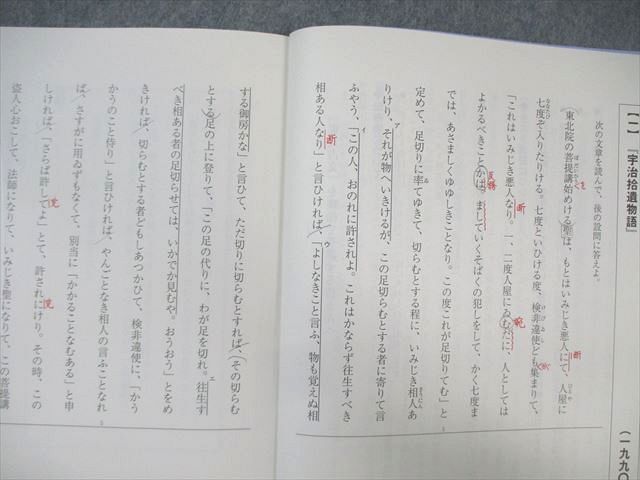 【一】『宇治拾遺物語』
（一九九〇
次の文章を読んで、後の設問に答えよ。
（東北院の菩提講始めける聖は、もとはいみじき悪人にて、人屋に
七度ぞ入りたりける。七度といひける度、検非違使ども集まりて、
「これはいみじき悪人なり。一、二度人屋にゐむだに、人としては
よかるべきことかは。ましていくそばくの犯しをして、かく七度ま
では、あさましくゆゆしきことなり。この度これが足切りてむ」と
定めて、足切りに率てゆきて、切らむとする程に、いみじき相人あ
りけり。それが物へいきけるが、この足切らむとする者に寄りて言
ふやう、「この人、おのれに許されよ。これはかならず往生すべき
相ある人なり」と言ひければ、「よしなきこと言ふ、物も覚えぬ相
する御房かな」と言ひて、ただ切りに切らむとすれば、（その切らむ
とする足の上に登りて、「この足の代りに、わが足を切れ。往生す
べき相ある者の足切らせては、いかでか見むや。おうおう」とをめ
きければ、切らむとする者どもしあつかひて、検非違使に、「かう
かうのこと侍り」と言ひければ、やんごとなき相人の言ふことなれ
ば、さすがに用ゐずもなくて、別当に「かかることなむある」と申
しければ、「さらば許してよ」とて、許されにけり。その時、この
盗人心おこして、法師になりて、いみじき聖になりて、この菩提講